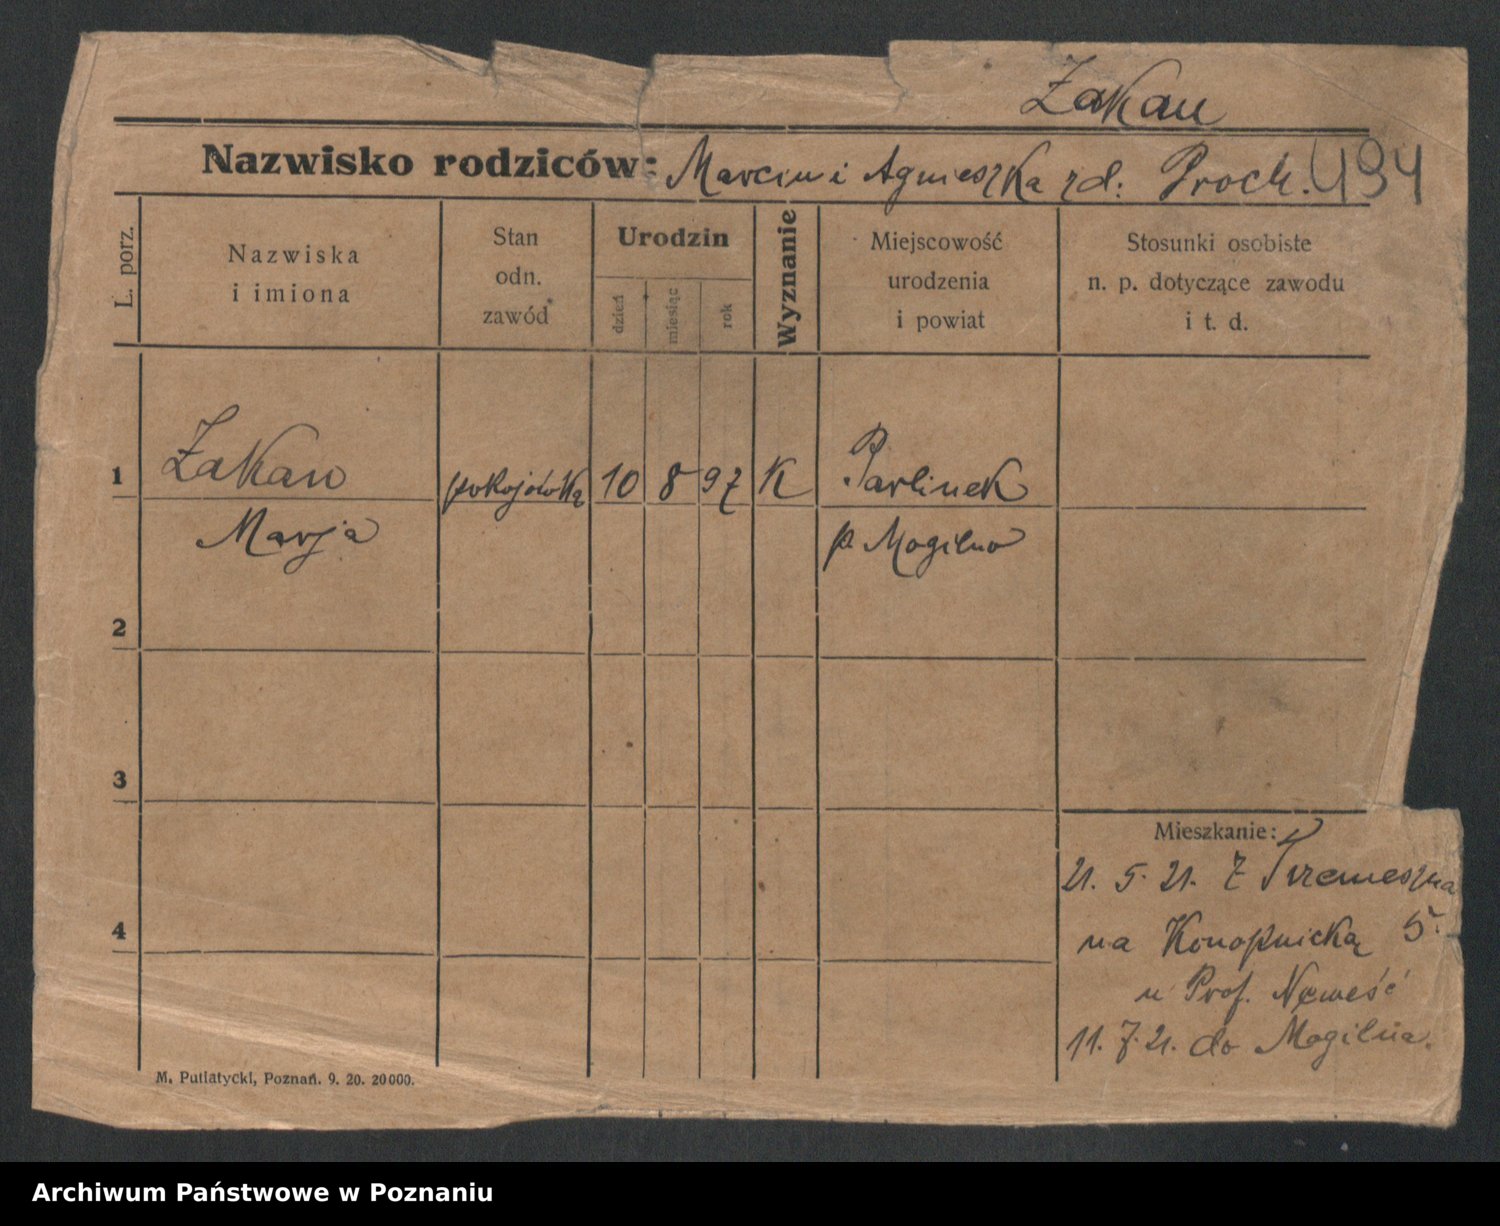 Żakau
Nazwisko rodziców: Marcin i Agnieszka zd: Proch. 494
L. porz.
Nazwiska i imiona
Stan odn. zawód
Urodzin
dzień
miesiąc
rok
Wyznanie
Miejscowość urodzenia i powiat
Stosunki osobiste n. p. dotyczące zawodu i t. d.
1 Żakau pokojówka 10 8 97 K Parlinek
Marja p. Mogilno
2
3
Mieszkanie:
21. 5. 21. z Trzemeszna
4
na Konopnicką 5.
u Prof.
11. 7. 21. do Mogilna.
M. Putiatycki, Poznań. 9. 20. 20000.
Archiwum Państwowe w Poznaniu